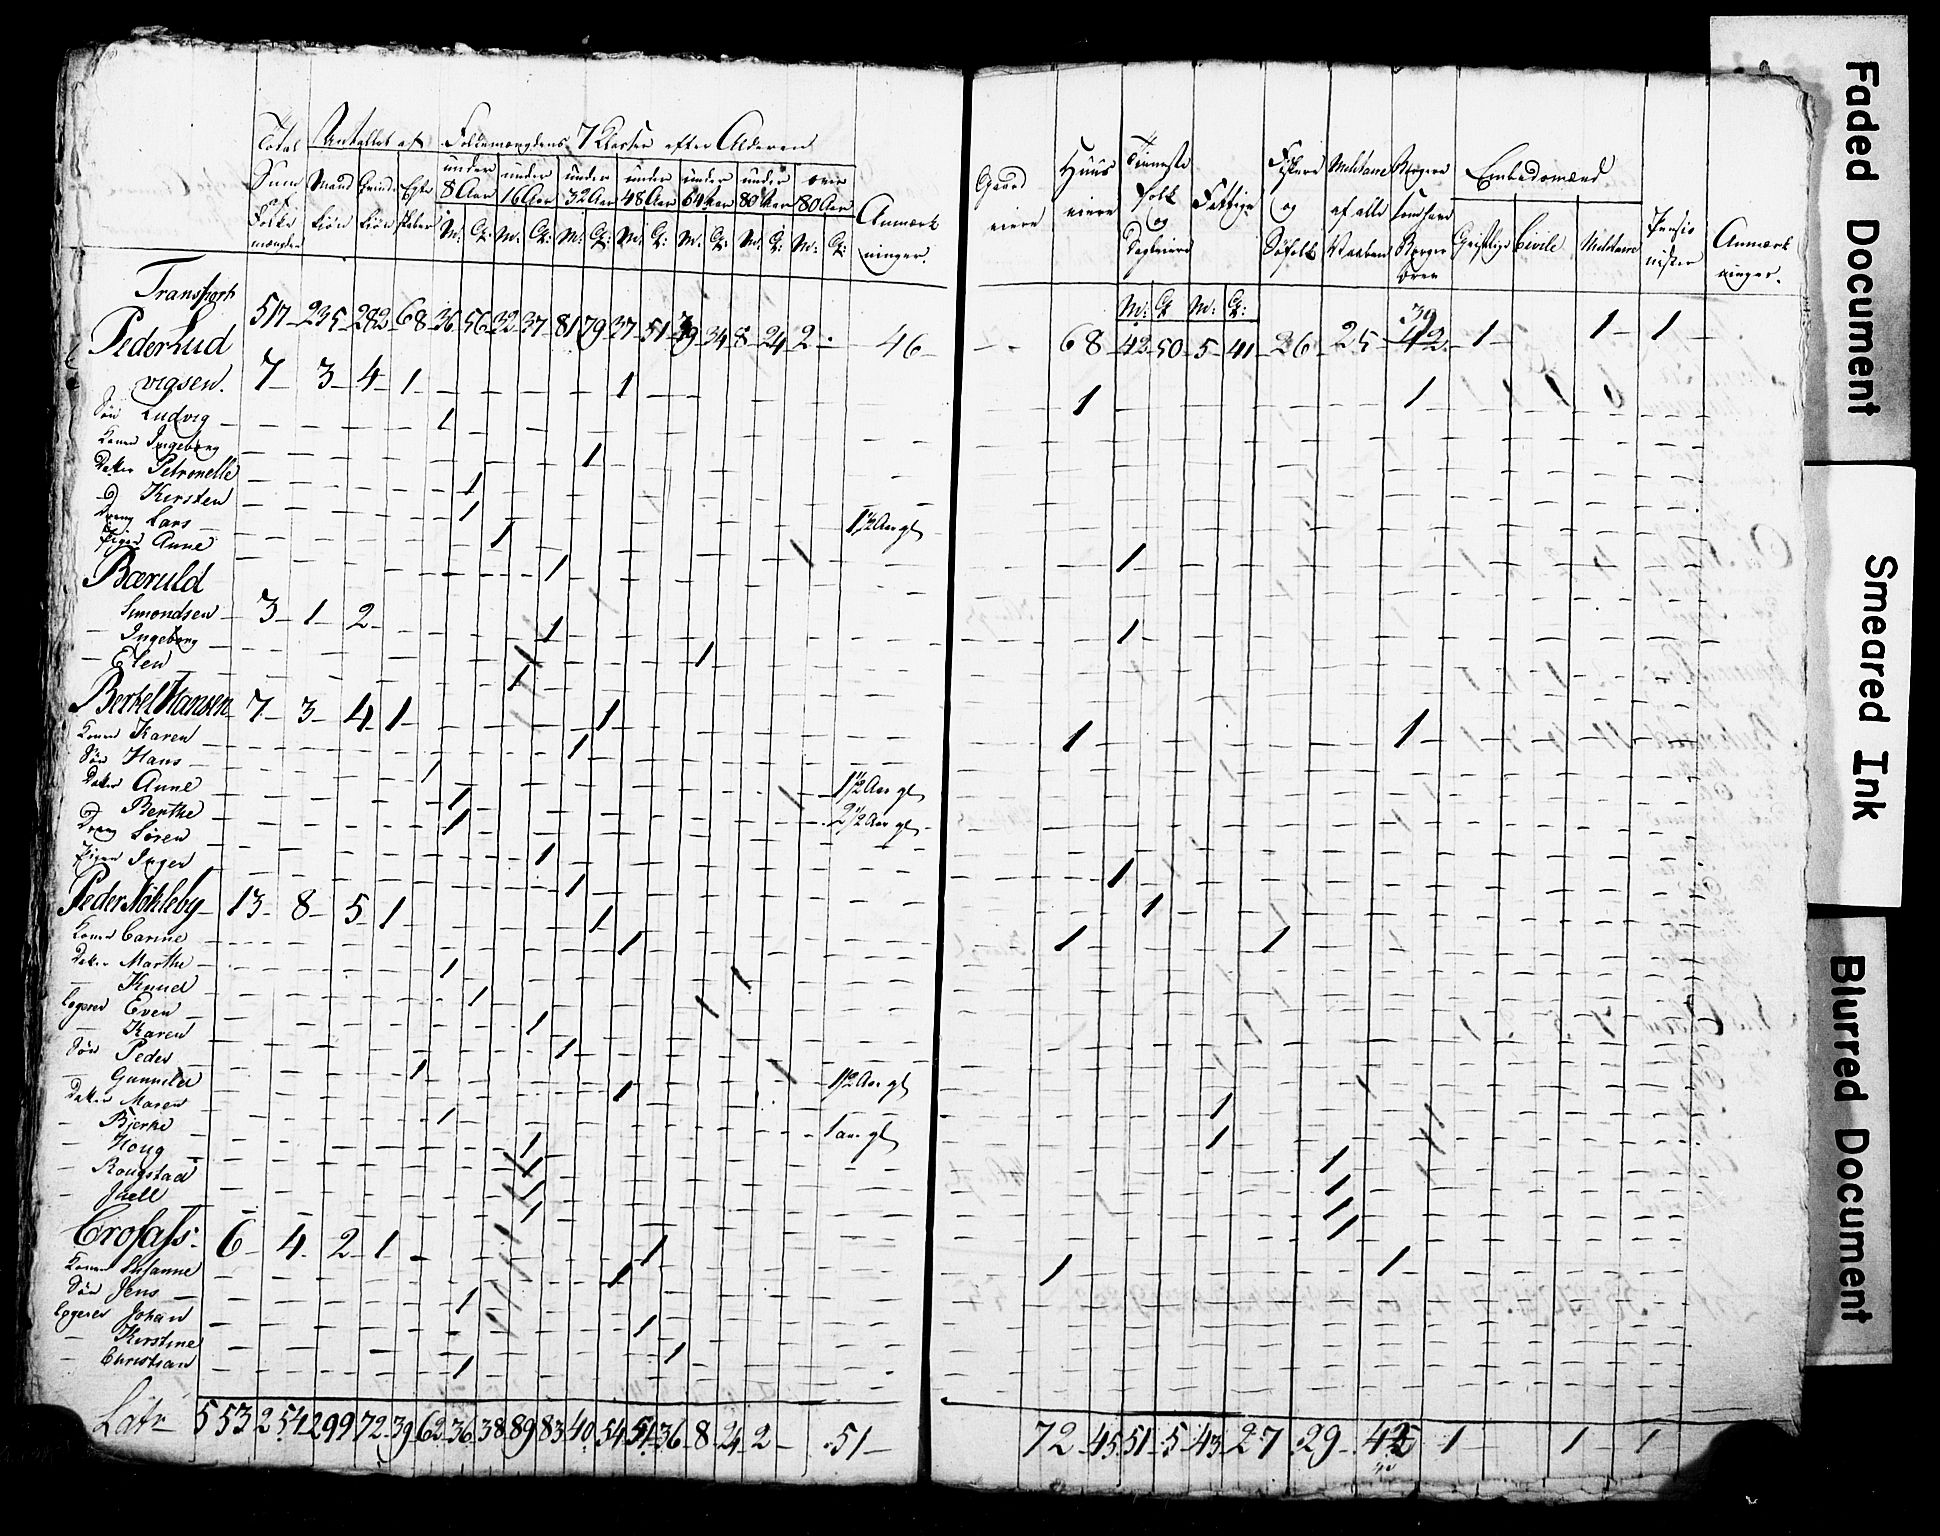 Total Antallet af Folkemængdens 7 Klasser efter Alderen
Sum Mand Qvinde Egte under under under under under under over
af 8 Aar 16 Aar 32 Aar 48 Aar 64 Aar 80 Aar 80 Aar Anmærk
Folke kiøn kiøn skaber M: Q: M: Q: M: Q: M: Q: M: Q: M: Q: M: Q: ninger.
mængden
Transport 517 235 282 68 36 56 32 37 81 79 37 51 39 34 8 24 2 46
Peder Lud
vigsen. 7 3 4 1 1
Søn Ludvig 1
Konen Ingeborg 1
Datter Petronelle 1
D Kirsten 1 1½ Aar gl
Dreng Lars 1
Pigen Anne 1
Bæruld
Simondsen 3 1 2 1
Ingeborg 1
Elen 1
Bertel Hansen 7 3 4 1 1
Konen Karen 1
Søn Hans 1 1½ Aar gl
Datter Anne 1 2½ Aar gl
D Berthe 1
Dreng Søren 1
Pigen Inger 1
Peder Nøkleby 13 8 5 1 1
Konen Carine 1
Datter Marthe 1
Knud 1
Logerer Even 1
Karen 1
Søn Peder 1 1½ Aar gl
Gunnild 1
Datter Maren 1 1 aar gl
Bjerke 1
Houg 1
Rougstad 1
Juell 1
Crosass: 6 4 2 1 1
Konen Susanne 1
Søn Jens 1
Logerer Johan 1
Kirstine 1
Christian 1
Latr 553 254 299 72 39 62 36 38 89 83 40 54 51 36 8 24 2 51
Gaard Huus Tieneste Fattige Fiskere Militaire Borgere Embedsmænd
eiere eiere folk og af alle som have Geistlige Civile Militaire Pensio Anmærk
og Søfolk Vaaben Borger nister ninger.
Dagleiere breve
M: Q: M: Q:
39
68 42 50 5 41 26 25 42 1 1 1
1 1
1
1
1 1
1
1
1 1
1
1
1
1
1
1
1 1
72 45 51 5 43 27 29 42 1 1 1
Faded Document
Smeared Ink
Blurred Document